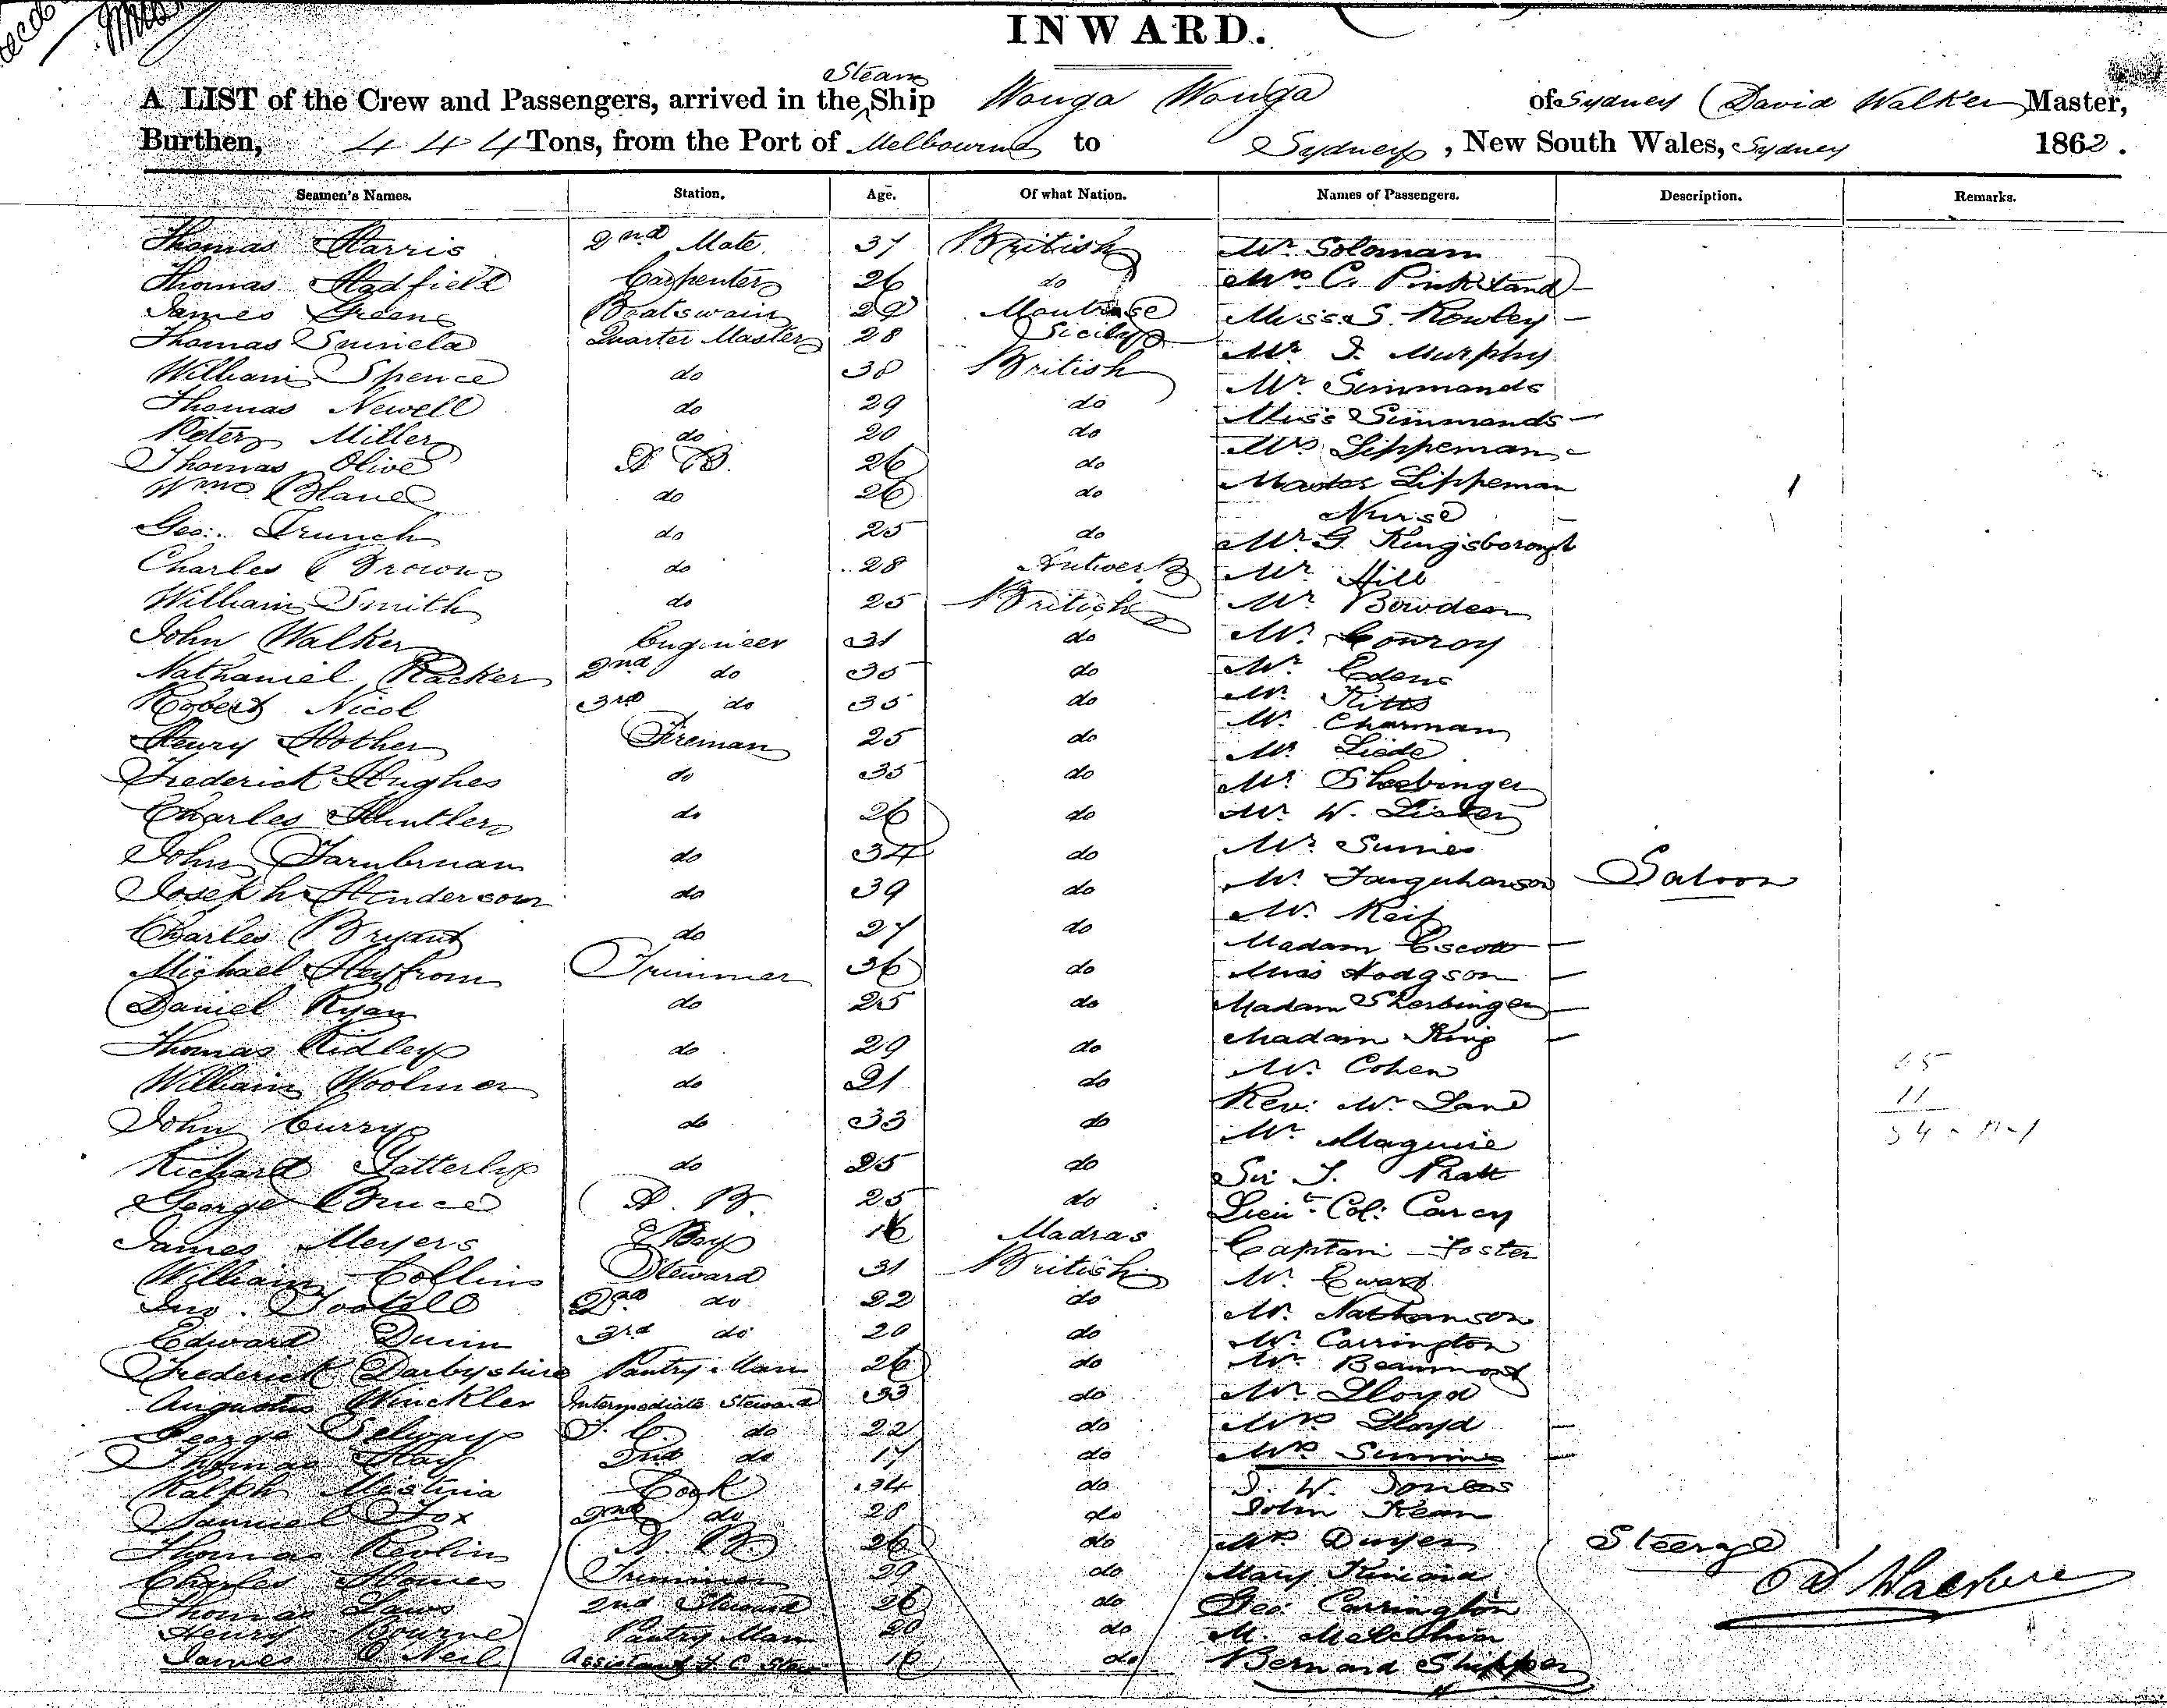 INWARD.
Steam
A LIST of the Crew and Passengers, arrived in the Ship Wonga Wonga of Sydney (David Walker Master,
Burthen, 444 Tons, from the Port of Melbourne to Sydney, New South Wales, Sydney 1862.
Seamen's Names. Station. Age. Of what Nation. Names of Passengers. Description. Remarks.
Thomas Harris 2nd Mate 37 British Mr Soloman
Thomas Hadfield Carpenter 26 do Mrs C. Pinkstand
James Greene Boatswain 29 Montrose Miss S. Rowley
Thomas Quarter Master 28 Sicily Mr J. Murphy
William Spence do 38 British Mr Simmonds
Thomas Newell do 29 do Miss Simmonds
Peter Miller do 20 do Mrs Lippeman
Thomas Olive A B. 26 do Master Lippeman
Wm Bland do 26 do Nurse
Geo: Trunch do 25 do Mr G Kingsborough
Charles Brown do 28 Antwerp Mr Hill
William Smith do 25 British Mr Bowden
John Walker Engineer 31 do Mr Conroy
Nathaniel Packer 2nd do 35 do Mr Edens
Robert Nicol 3rd do 35 do Mr Kitts
Henry Hother Fireman 25 do Mr Charman
Mr Liede
Frederick Hughes do 35 do Mr
Charles Huntler do 26 do Mr W. Lister
John do 34 do Mr
Joseph Henderson do 39 do Mr Farquharson Saloon
Charles Bryant do 27 do Mr Keif
Madam Escott
Michael Trimmer 36 do Miss Hodgson
Daniel Ryan do 25 do Madam
Thomas Ridley do 29 do Madam King
William Woolmer do 21 do Mr Cohen
Rev: Mr Lane
John Curry do 33 do Mr Maguire
Richard Gatterly do 25 do Sir T. Pratt
George Bruce A. B. 25 do Lieut Col: Carey
James Meyers Boy 16 Madras Captain Foster
William Collins Steward 31 British Mr Ewart
Jno. Tootill 2nd do 22 do Mr Nathanson
Edward Dunn 3rd do 20 do Mr Carrington
Frederick Darbyshire Pantry Man 26 do Mr Beaumont
Augustus Winckler Intermediate Steward 33 do Mr Lloyd
George Selway F. C. do 22 do Mrs Lloyd
Thomas Hay 2nd do 17 do Mrs
Ralph Cook 34 do J. W. Jones
Samuel Fox 2nd do 28 do John Kean
Thomas A B 26 do Mrs Dwyer Steerage
Charles Trimmer 29 do Mary
Thomas Laws 2nd Steward 26 do Geo: Carrington
Henry Bourne Pantry Man 20 do M.
James O Neil Assistant F C Stew do Bernard Shipper